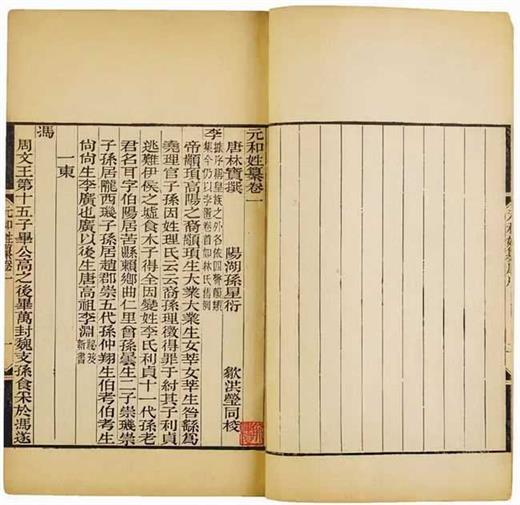 元和姓纂卷一
唐林寶撰 陽湖孫星衍 歙洪瑩同校
李 據序稱皇族之外各依四聲韻類集今仍以李置卷首如林氏舊例
帝顓頊高陽之裔顓頊生大業大業生女莘女莘生咎繇爲
堯理官子孫因姓理氏云云裔孫理徵得罪于紂其子利貞
逃難伊侯之墟食木子得全因變姓李氏利貞十一代孫老
君名耳字伯陽居苦縣賴鄉曲仁里曾孫曇生二子崇璣崇
子孫居隴西璣子孫居趙郡崇五代孫仲翔生伯考伯考生
尙尙生李廣也廣以後生唐高祖李淵 秘笈新書
一東
馮
周文王第十五子畢公高之後畢萬封魏支孫食采於馮遂
元和姓纂卷一 一